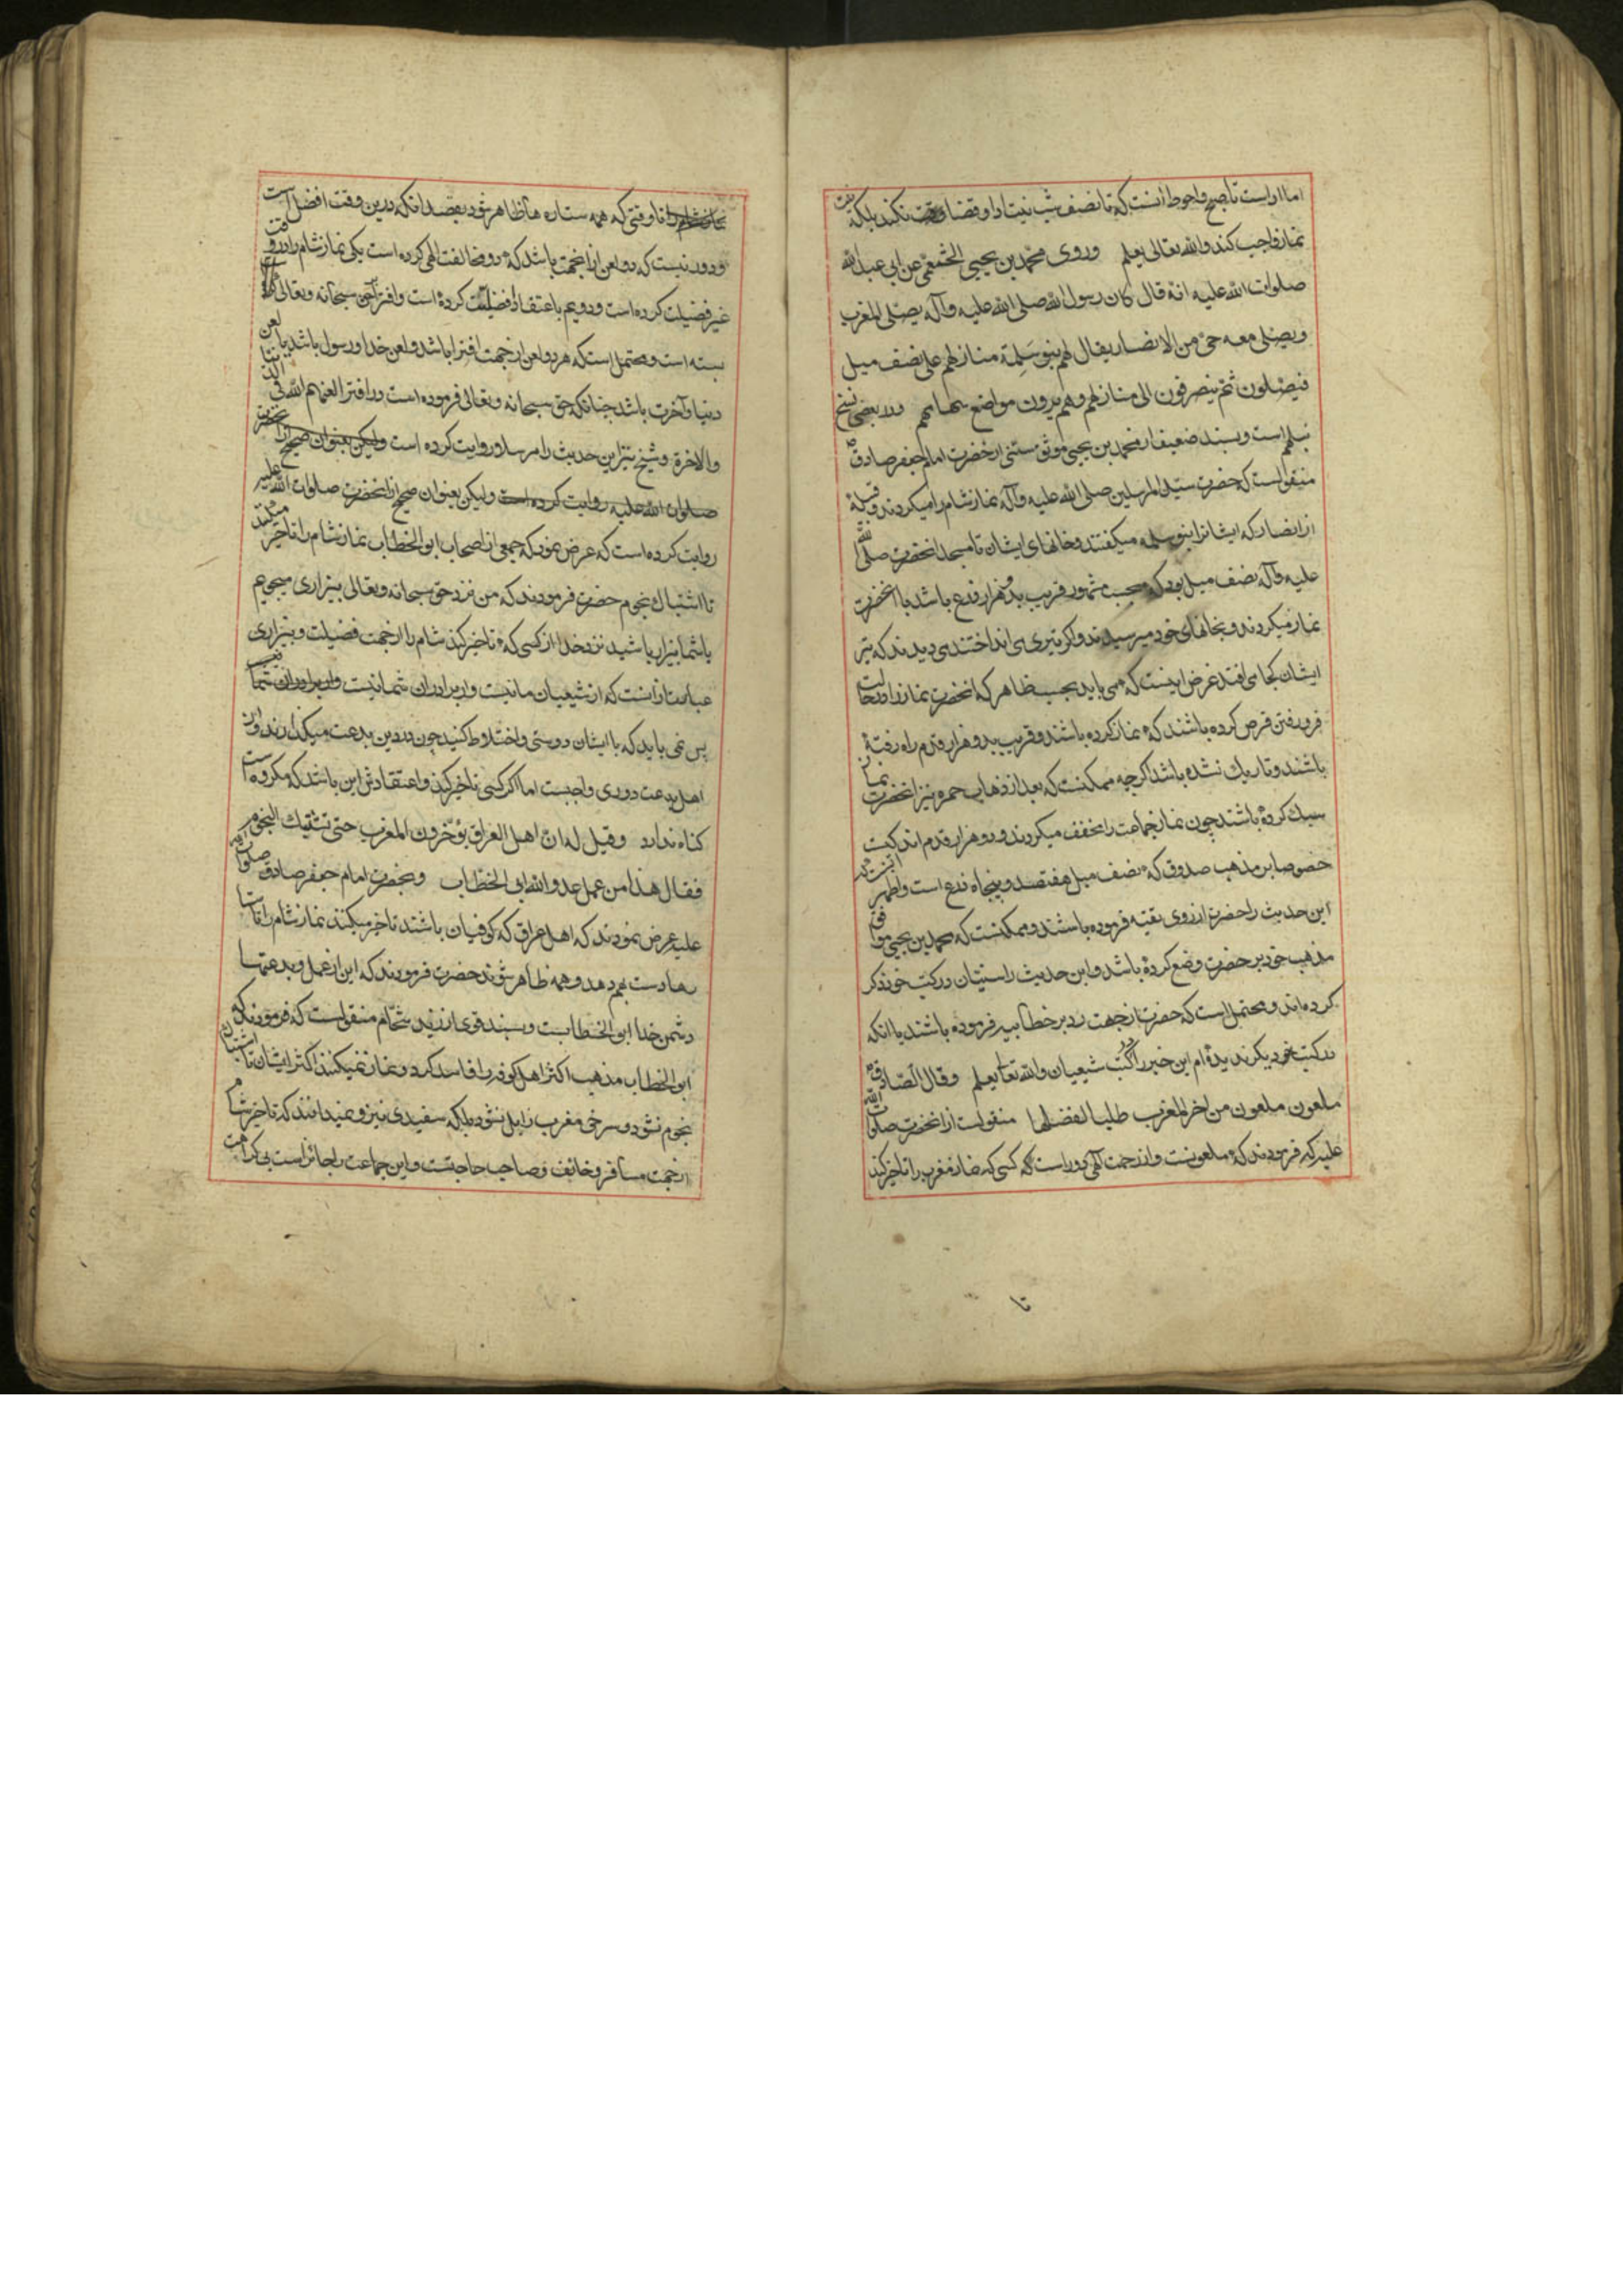 اما ادا است تا صبح و احوط انست که تا نصف شب نیت ادا و قضا نکند بلکه نیت
نماز واجب کند والله تعالی یعلم وروی محمد بن یحیی الخثعمی عن ابی عبدالله
صلوات الله علیه انه قال کان رسول الله صلی الله علیه وآله یصلی المغرب
ویصلی معه حی من الانصار یقال لهم بنو سلمة منازلهم علی نصف میل
فیصلون ثم ینصرفون الی منازلهم وهم یرون مواضع سهامهم ودر بعضی نسخ
نبلهم است وبسند ضعیف از محمد بن یحیی موثق سنی از حضرت امام جعفر صادق
منقولست که حضرت سید المرسلین صلی الله علیه وآله نماز شام را میکردند وقبیلهٔ
از انصار که ایشانرا بنو سلمه میکفتند وخانهای ایشان تا مسجد انحضرت صلی الله
علیه وآله نصف میل بود که بحسب مشهور قریب بدو هزار ذرع باشد با انحضرت
نماز میکردند وبخانهای خود میرسیدند واکر تیری می انداختند می دیدند که تیر
ایشان کجا می افتد غرض اینست که می باید بحسب ظاهر که انحضرت نماز را در حالت
فرو رفتن قرص کرده باشند که نماز کرده باشند وقریب بدو هزار قدم راه رفته
باشند وتاریک نشده باشد اکرچه ممکنست که بعد از ذهاب حمره نیز انحضرت نماز
سبک کرده باشند چون نماز جماعت را مخفف میکردند ودو هزار قدم اندکیست
خصوصا بر مذهب صدوق که نصف میل هفتصد وپنجاه ذرع است واظهر انست که
این حدیث را حضرت از روی تقیه فرموده باشند وممکنست که محمد بن یحیی موافق
مذهب خود بر حضرت وضع کرده باشد واین حدیث را سنیان در کتب خود ذکر
کرده اند ومحتمل است که حضرت از جهت رد بر خطابیه فرموده باشند با انکه
در کتب خود دیکر ندیده ام این خبر را در کتب شیعیان والله تعالی یعلم وقال الصادق
ملعون ملعون من اخر المغرب طلبا لفضلها منقولست از انحضرت صلوات الله
علیه که فرمودند که ملعونست واز رحمت الهی دور است کسی که نماز مغرب را تاخیر کند
تا
نماز شام را تا وقتی که همه ستاره ها ظاهر شود بقصد انکه درین وقت افضل است
ودور نیست که دو لعن از انجهت باشد که دو مخالفت الهی کرده است یکی نماز شام را در وقت
غیر فضیلت کرده است ودویم باعتقاد فضیلت کرده است وافترا بحق سبحانه وتعالی
بسته است ومحتمل است که هر دو لعن از جهت افترا باشد ولعن خدا ورسول باشد یا لعن
دنیا وآخرت باشد چنانکه حق سبحانه وتعالی فرموده است در افترا لعنهم الله فی الدنیا
والآخرة وشیخ نیز این حدیث را مرسلا روایت کرده است ولیکن بعنوان صحیح از انحضرت
صلوات الله علیه روایت کرده است ولیکن بعنوان صحیح از انحضرت صلوات الله علیه
روایت کرده است که عرض نمود که جمعی از اصحاب ابو الخطاب نماز شام را تاخیر میکنند
تا اشتباک نجوم حضرت فرمودند که من نزد حق سبحانه وتعالی بیزاری میجویم
یا شما بیزار باشید نزد خدا از کسی که تاخیر کند شام را از جهت فضیلت وبیزاری
عبارت از انست که از شیعیان ما نیست واز برادران شما نیست واز برادران شما نیست
پس نمی باید که با ایشان دوستی واختلاط کنید چون در دین بدعت میکذارند واز
اهل بدعت دوری واجبست اما اکر کسی تاخیر کند واعتقادش این باشد که مکروه است
کناه ندارد وقیل له ان اهل العراق یؤخرون المغرب حتی تشتبک النجوم
فقال هذا من عمل عدو الله ابی الخطاب وبحضرت امام جعفر صادق صلوات الله
علیه عرض نمودند که اهل عراق که کوفیان باشند تاخیر میکنند نماز شام را تا ستا
رها دست بهم دهد وهمه ظاهر شوند حضرت فرمودند که این از عمل وبدعتها
دشمن خدا ابو الخطابست وبسند قوی از زید شحام منقولست که فرمودند که
ابو الخطاب مذهب اکثر اهل کوفه را فاسد کرد ونماز نمیکنند اکثر ایشان تا اشتباک
نجوم نشود وسرخی مغرب زایل نشود بلکه سفیدی نیز ونمیدانند که تاخیر شام
از جهت مسافر وخائف وصاحب حاجتست واین جماعت را جائز است بی کراهت